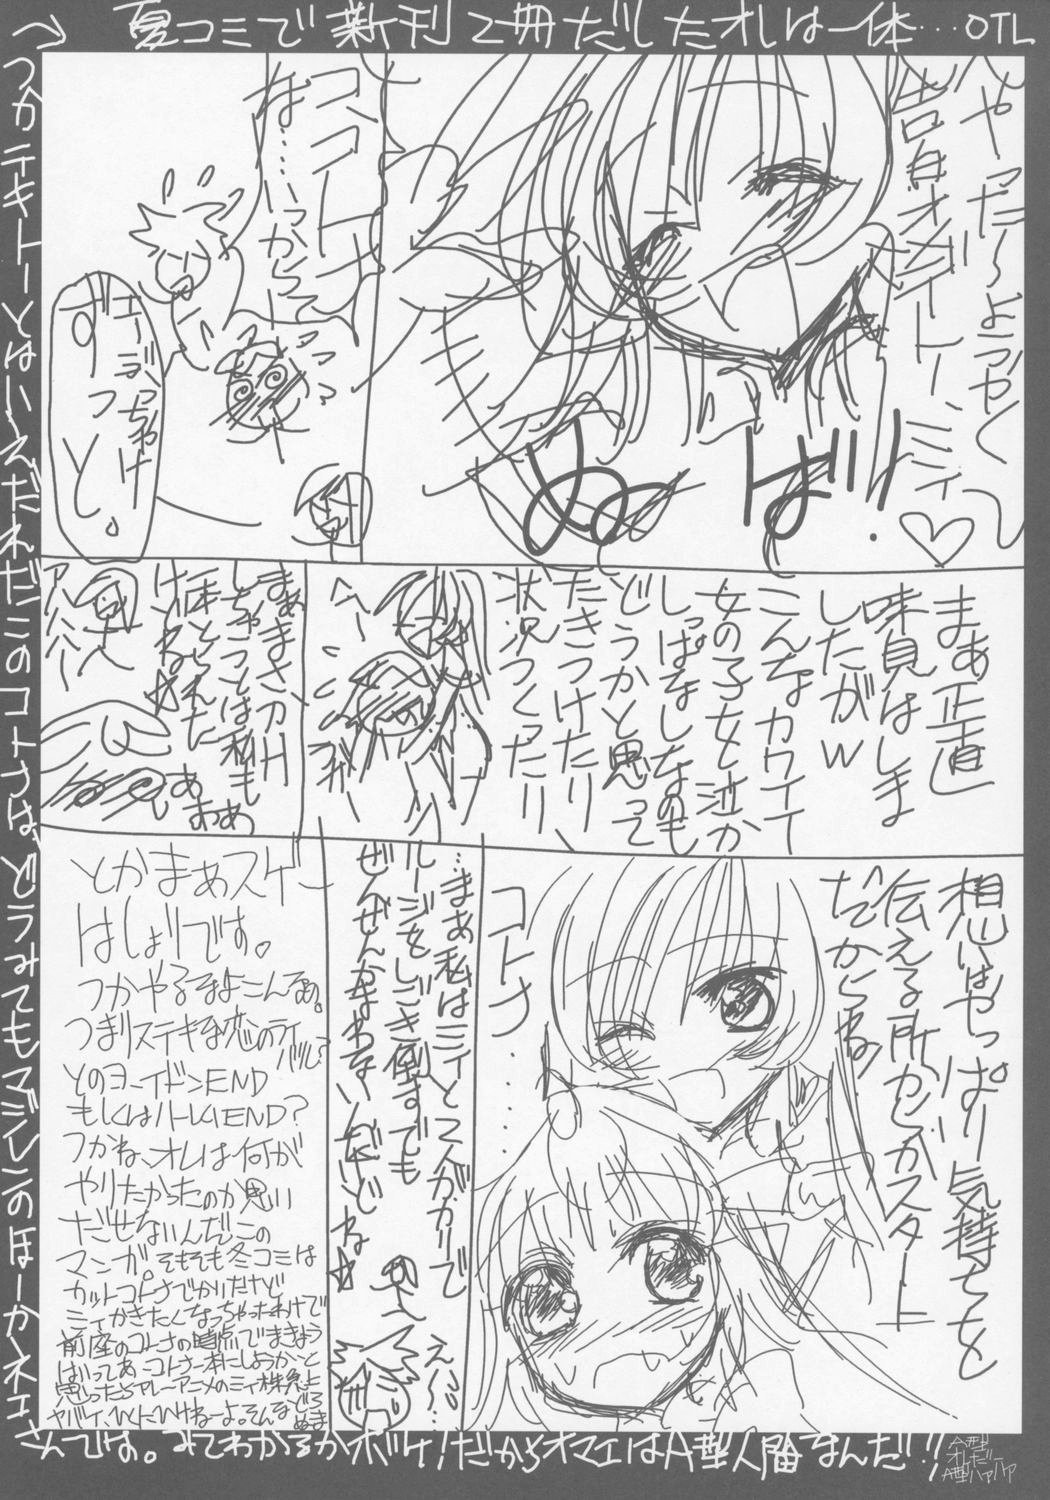 夏コミで新刊2冊だしたオレは一体…OTL
やった〜ようやく
告白オメデトー、ミィ〜♡
ぬ
ば!!
コ、コトナ
な…いつからそこに
エーぶっちゃけ
ずっと。
まぁ正直
味見はしま
したがw
こんなカワイイ
女の子女と泣か
しっぱなしなのも
どうかと思って
たきつけたり
状況つくったり
へ〜
まぁまさかH
しちゃうとは私も
けど
アハハハ〜
あああぁ
想いはやっぱり気持ちを
伝える所せからスタート
だからね
コトナ……
…まぁ私はミィとスガリで
ルージをしごき倒すでも
ぜんぜんかまわないんだけど
ね☆
え〜…
とかまぁスゲー
はしょりです。
つかやるきよこんなぁ。
つまりステキな恋のライバル?
とのヨーイドンEND
もしくはハーレムEND?
つかね、オレは何が
やりたかったのか思い
だせないんだこの
マンガ。そもそも冬コミは
カットコトナでかいたけど
ミィかきたくなっちゃったわけで
前座のコトナの時点で
ばいってあーコトナ一本にしようかと
思ったらアレーアニメのミィ株急上
ヤバイ、ひくにひけねーよ。そんな
つかテキトーとはいえだれだこのコトナは、どうみてもマジレンのほーかネエ
さんです。みてわかるかボケ!だからオマエはA型人間なんだ!!
A型
オレだー
A型ハァハァ